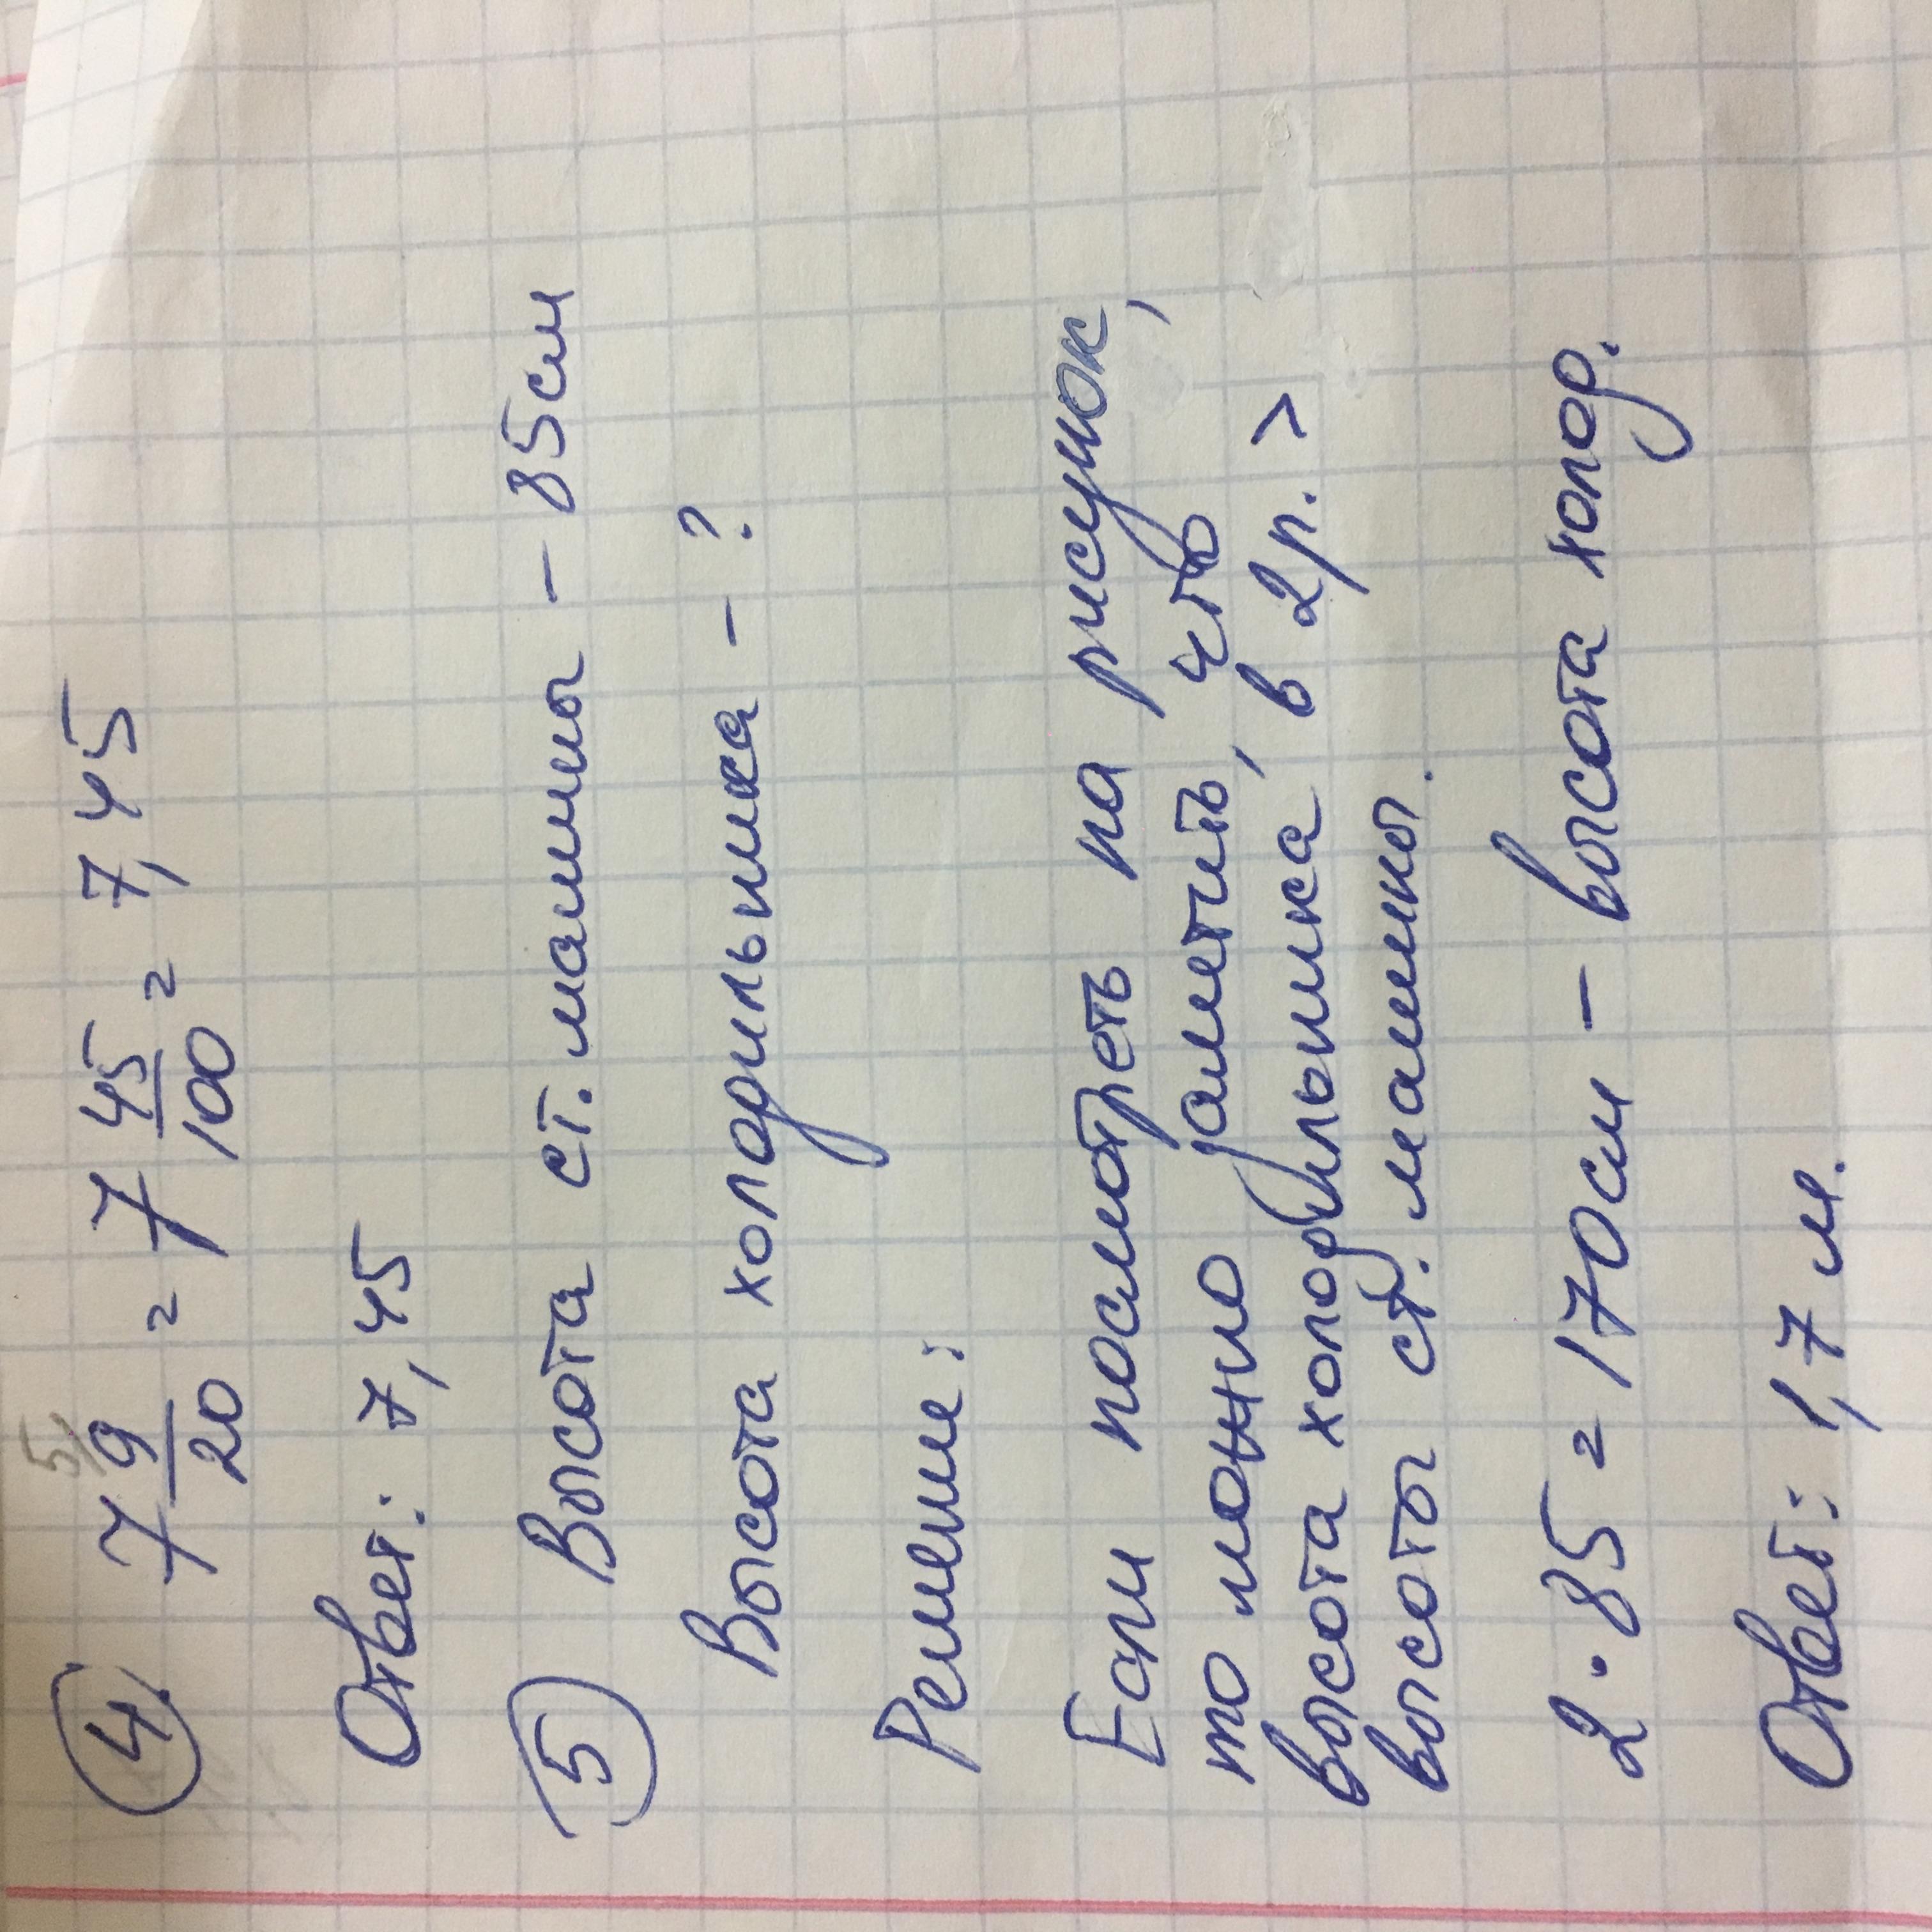 4. 7 9/20 5/ = 7 45/100 = 7,45
Ответ: 7,45
5 Высота ст. машины - 85см
Высота холодильника - ?
Решение:
Если посмотреть на рисунок,
то можно заметить, что
высота холодильника в 2р. >
высоты ст. машины.
2 · 85 = 170см - высота холод.
Ответ: 1,7 м.